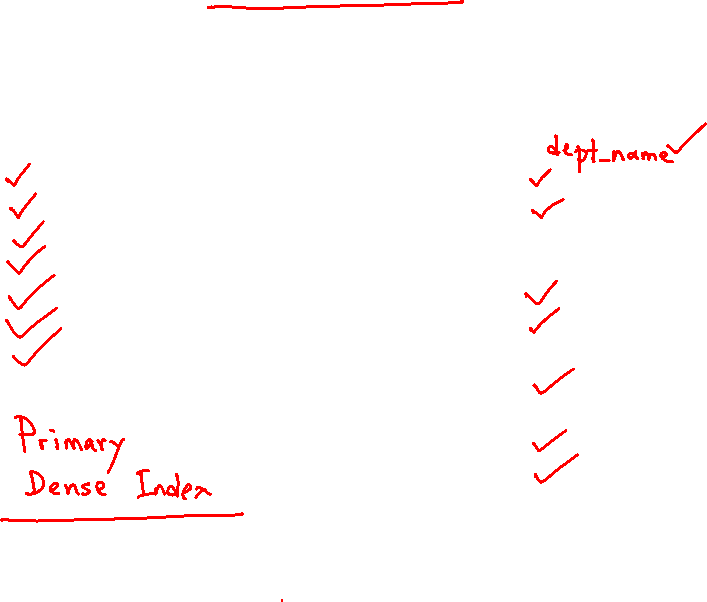 dept_name
Primary
Dense Index